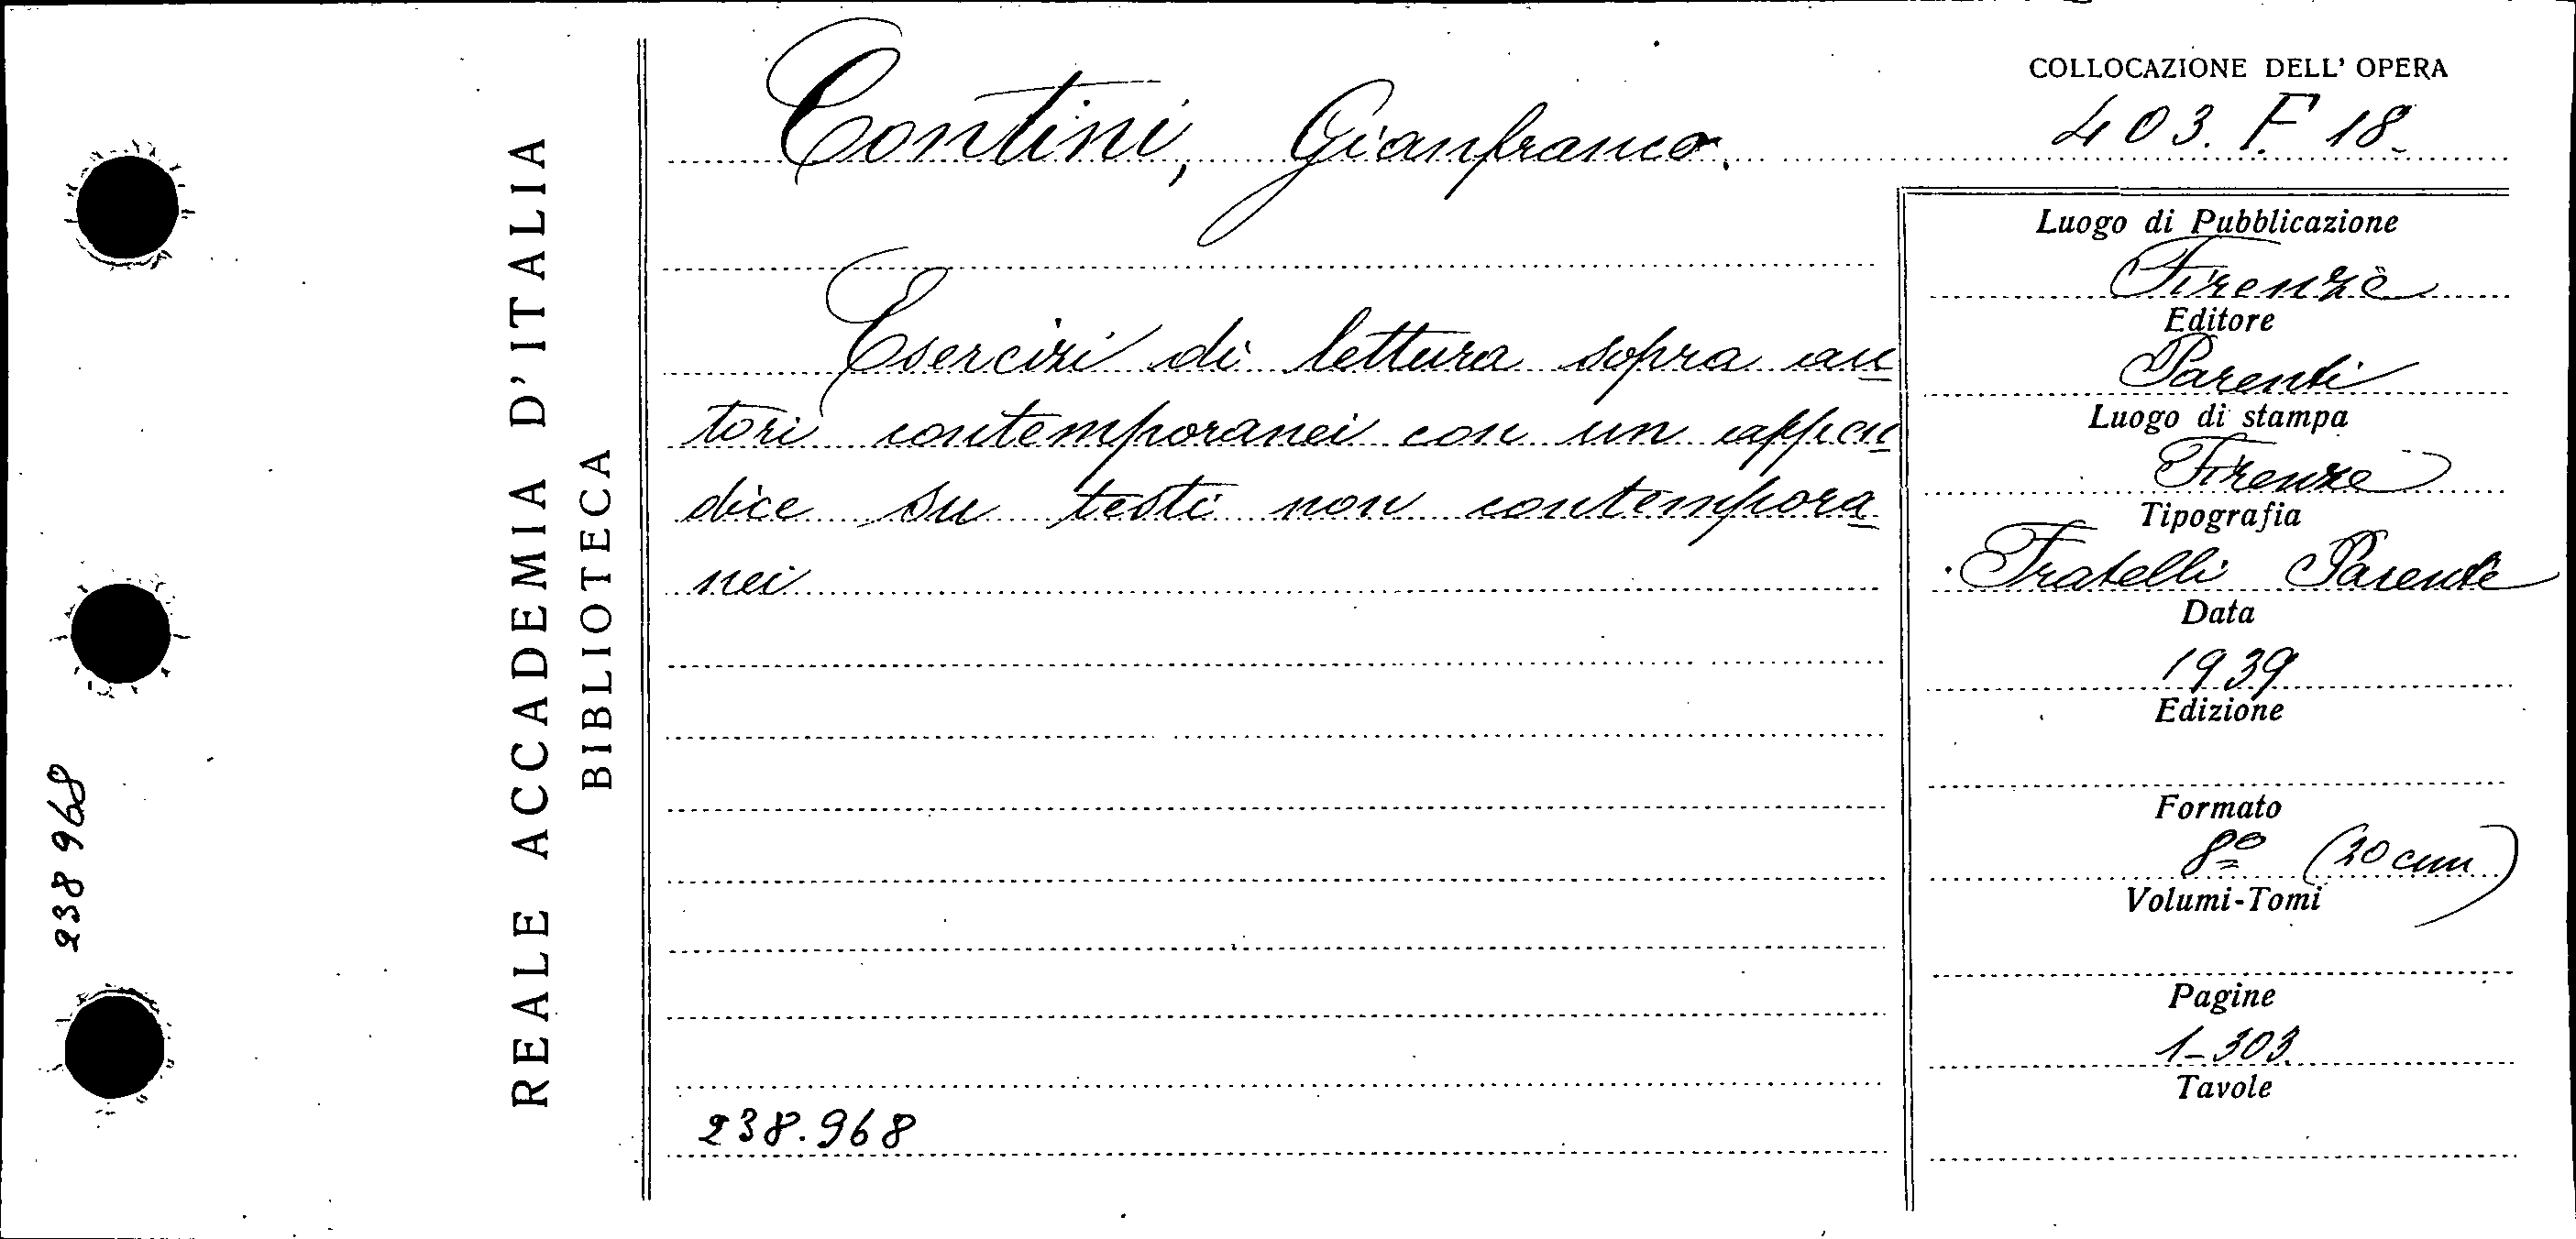 REALE ACCADEMIA D'ITALIA
BIBLIOTECA
238968
Contini, Gianfranco.
Esercizi di lettura sopra au
tori contemporanei con un appen
dice su testi non contempora
nei
238.968
COLLOCAZIONE DELL' OPERA
403. F. 18.
Luogo di Pubblicazione
Firenze
Editore
Parenti
Luogo di stampa
Firenze
Tipografia
Fratelli Parenti
Data
1939
Edizione
Formato
8º (20 cm)
Volumi-Tomi
Pagine
1-303
Tavole